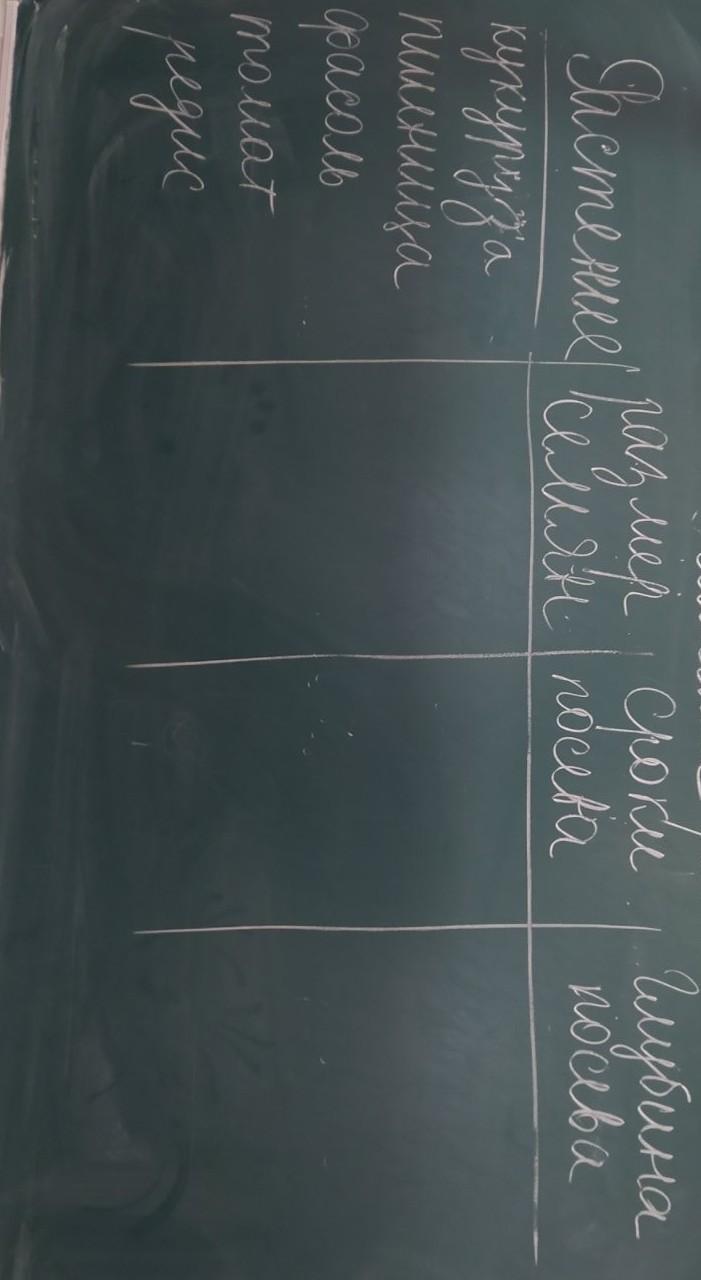 Растение размер семян сроки посева глубина посева
кукуруза
пшеница
фасоль
томат
редис